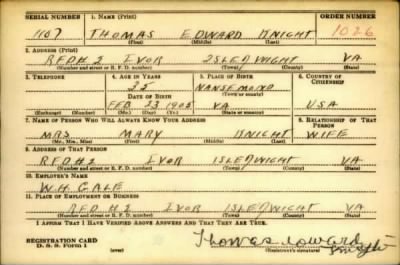 SERIAL NUMBER 1. NAME (Print) ORDER NUMBER
1107 THOMAS EDWARD KNIGHT 1026
(First) (Middle) (Last)
2. ADDRESS (Print)
RFD#2 IVOR ISLE OF WIGHT VA
(Number and street or R. F. D. number) (Town) (County) (State)
3. TELEPHONE 4. AGE IN YEARS 5. PLACE OF BIRTH 6. COUNTRY OF CITIZENSHIP
35 NANSEMOND
DATE OF BIRTH (Town or county)
FEB 23 1905 VA USA
(Exchange) (No.) (Mo.) (Day) (Yr.) (State or country)
7. NAME OF PERSON WHO WILL ALWAYS KNOW YOUR ADDRESS 8. RELATIONSHIP OF THAT PERSON
MRS MARY KNIGHT WIFE
(Mr., Mrs., Miss) (First) (Middle) (Last)
9. ADDRESS OF THAT PERSON
RFD#2 IVOR ISLE WIGHT VA
(Number and street or R. F. D. number) (Town) (County) (State)
10. EMPLOYER'S NAME
W.H. GALE
11. PLACE OF EMPLOYMENT OR BUSINESS
RFD #2 IVOR ISLE WIGHT VA
(Number and street or R. F. D. number) (Town) (County) (State)
I AFFIRM THAT I HAVE VERIFIED ABOVE ANSWERS AND THAT THEY ARE TRUE.
REGISTRATION CARD Thomas Edward Knight
D. S. S. Form 1 (over) (Registrant's signature)